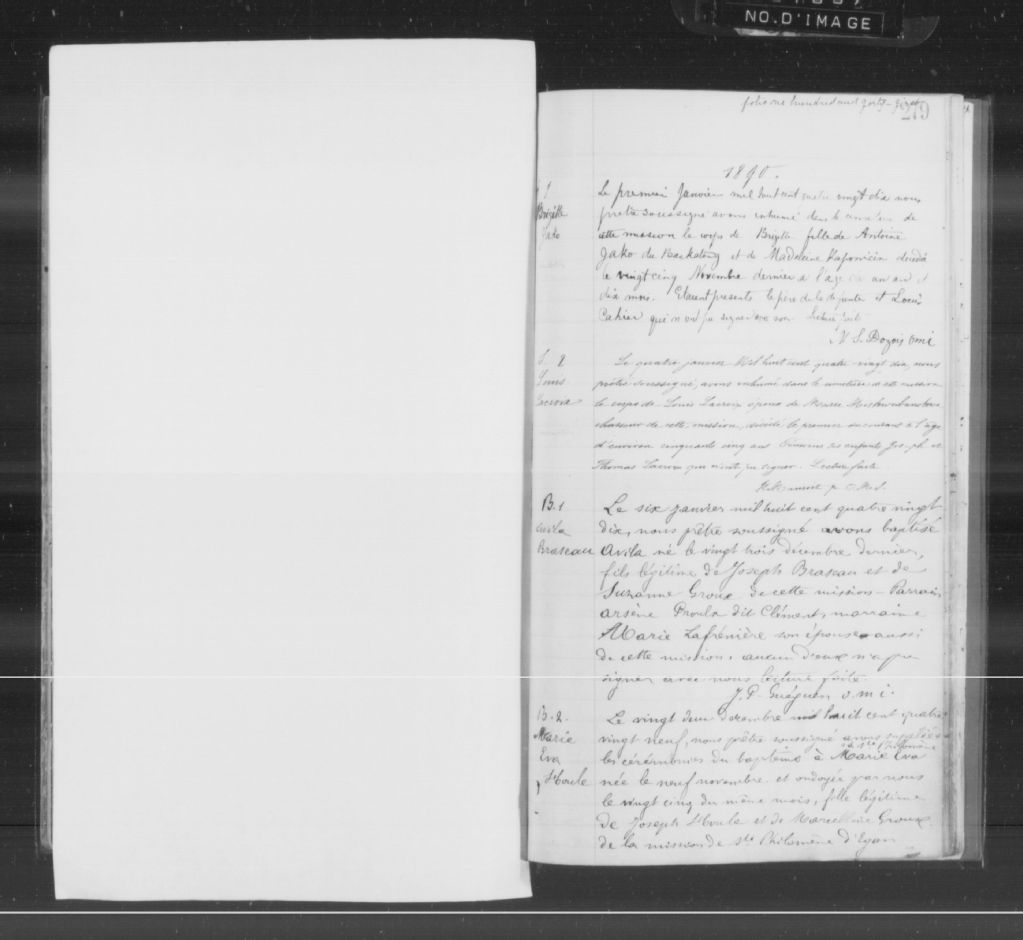 NO. D'IMAGE
folio one hundred and forty-first
279
1890.
S. 1
Brigitte
Jako
Le premier Janvier mil huit cent quatre vingt dix nous
prêtre soussigné avons inhumé dans le cimetière de
cette mission le corps de Brigitte fille de Antoine
Jako du et de Madeleine Kaponicin décédé
le vingt cinq Novembre dernier a l'age de un an et
dix mois. Etaient presents le père de la défunte et Louis
Cahier qui n'ont pu signer avec nous. Lecture faite
N. S. Dozois omi
S. 2
Louis
Lacroix
Le quatre janvier Mil huit cent quatre vingt dix, nous
prêtre soussigné, avons inhumé dans le cimetière de cette mission
le corps de Louis Lacroix époux de Marie
chasseur de cette mission, décédé le premier du courant à l'âge
d'environ cinquante cinq ans Témoins ses enfants Joseph et
Thomas Lacroix qui n'ont pu signer. Lecture faite
B. 1
Avila
Braseau
Le six janvier mil huit cent quatre vingt
dix, nous prêtre soussigné avons baptisé
Avila né le vingt trois décembre dernier,
fils légitime de Joseph Braseau et de
Suzanne Groux de cette mission - Parrain
Arsène Proulx dit Clément, marraine
Marie Lafrénière son épouse aussi
de cette mission. aucun d'eux n'a pu
signer avec nous lecture faite.
J. P. Guéguen o.m.i.
B. 2.
Marie
Eva
St Houle
Le vingt deux décembre mil huit cent quatre
vingt neuf, nous prêtre soussigné avons suppléé
à Ste Philomène
les cérémonies du baptême à Marie Eva
née le neuf novembre et ondoyée par nous
le vingt cinq du même mois, fille légitime
de Joseph St Houle et de Marcelline Groux
de la mission de Ste Philomène d'Egan